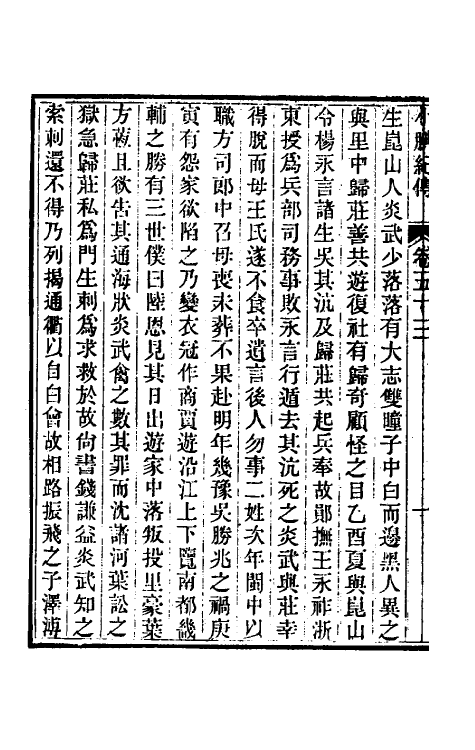 小腆紀傳 卷五十三
生崑山人炎武少落落有大志雙瞳子中白而邊黑人異之
與里中歸莊善共遊復社有歸奇顧怪之目乙酉夏與崑山
令楊永言諸生吳其沆及歸莊共起兵奉故鄖撫王永祚浙
東授爲兵部司務事敗永言行遁去其沆死之炎武與莊幸
得脫而母王氏遂不食卒遺言後人勿事二姓次年閩中以
職方司郎中召母喪未葬不果赴明年幾豫吳勝兆之禍庚
寅有怨家欲陷之乃變衣冠作商賈遊沿江上下覽南都畿
輔之勝有三世僕曰陸恩見其日出遊家中落叛投里豪葉
方蒧且欲告其通海狀炎武禽之數其罪而沈諸河葉訟之
獄急歸莊私爲門生刺爲求救於故尙書錢謙益炎武知之
索刺還不得乃列揭通衢以自白會故相路振飛之子澤溥